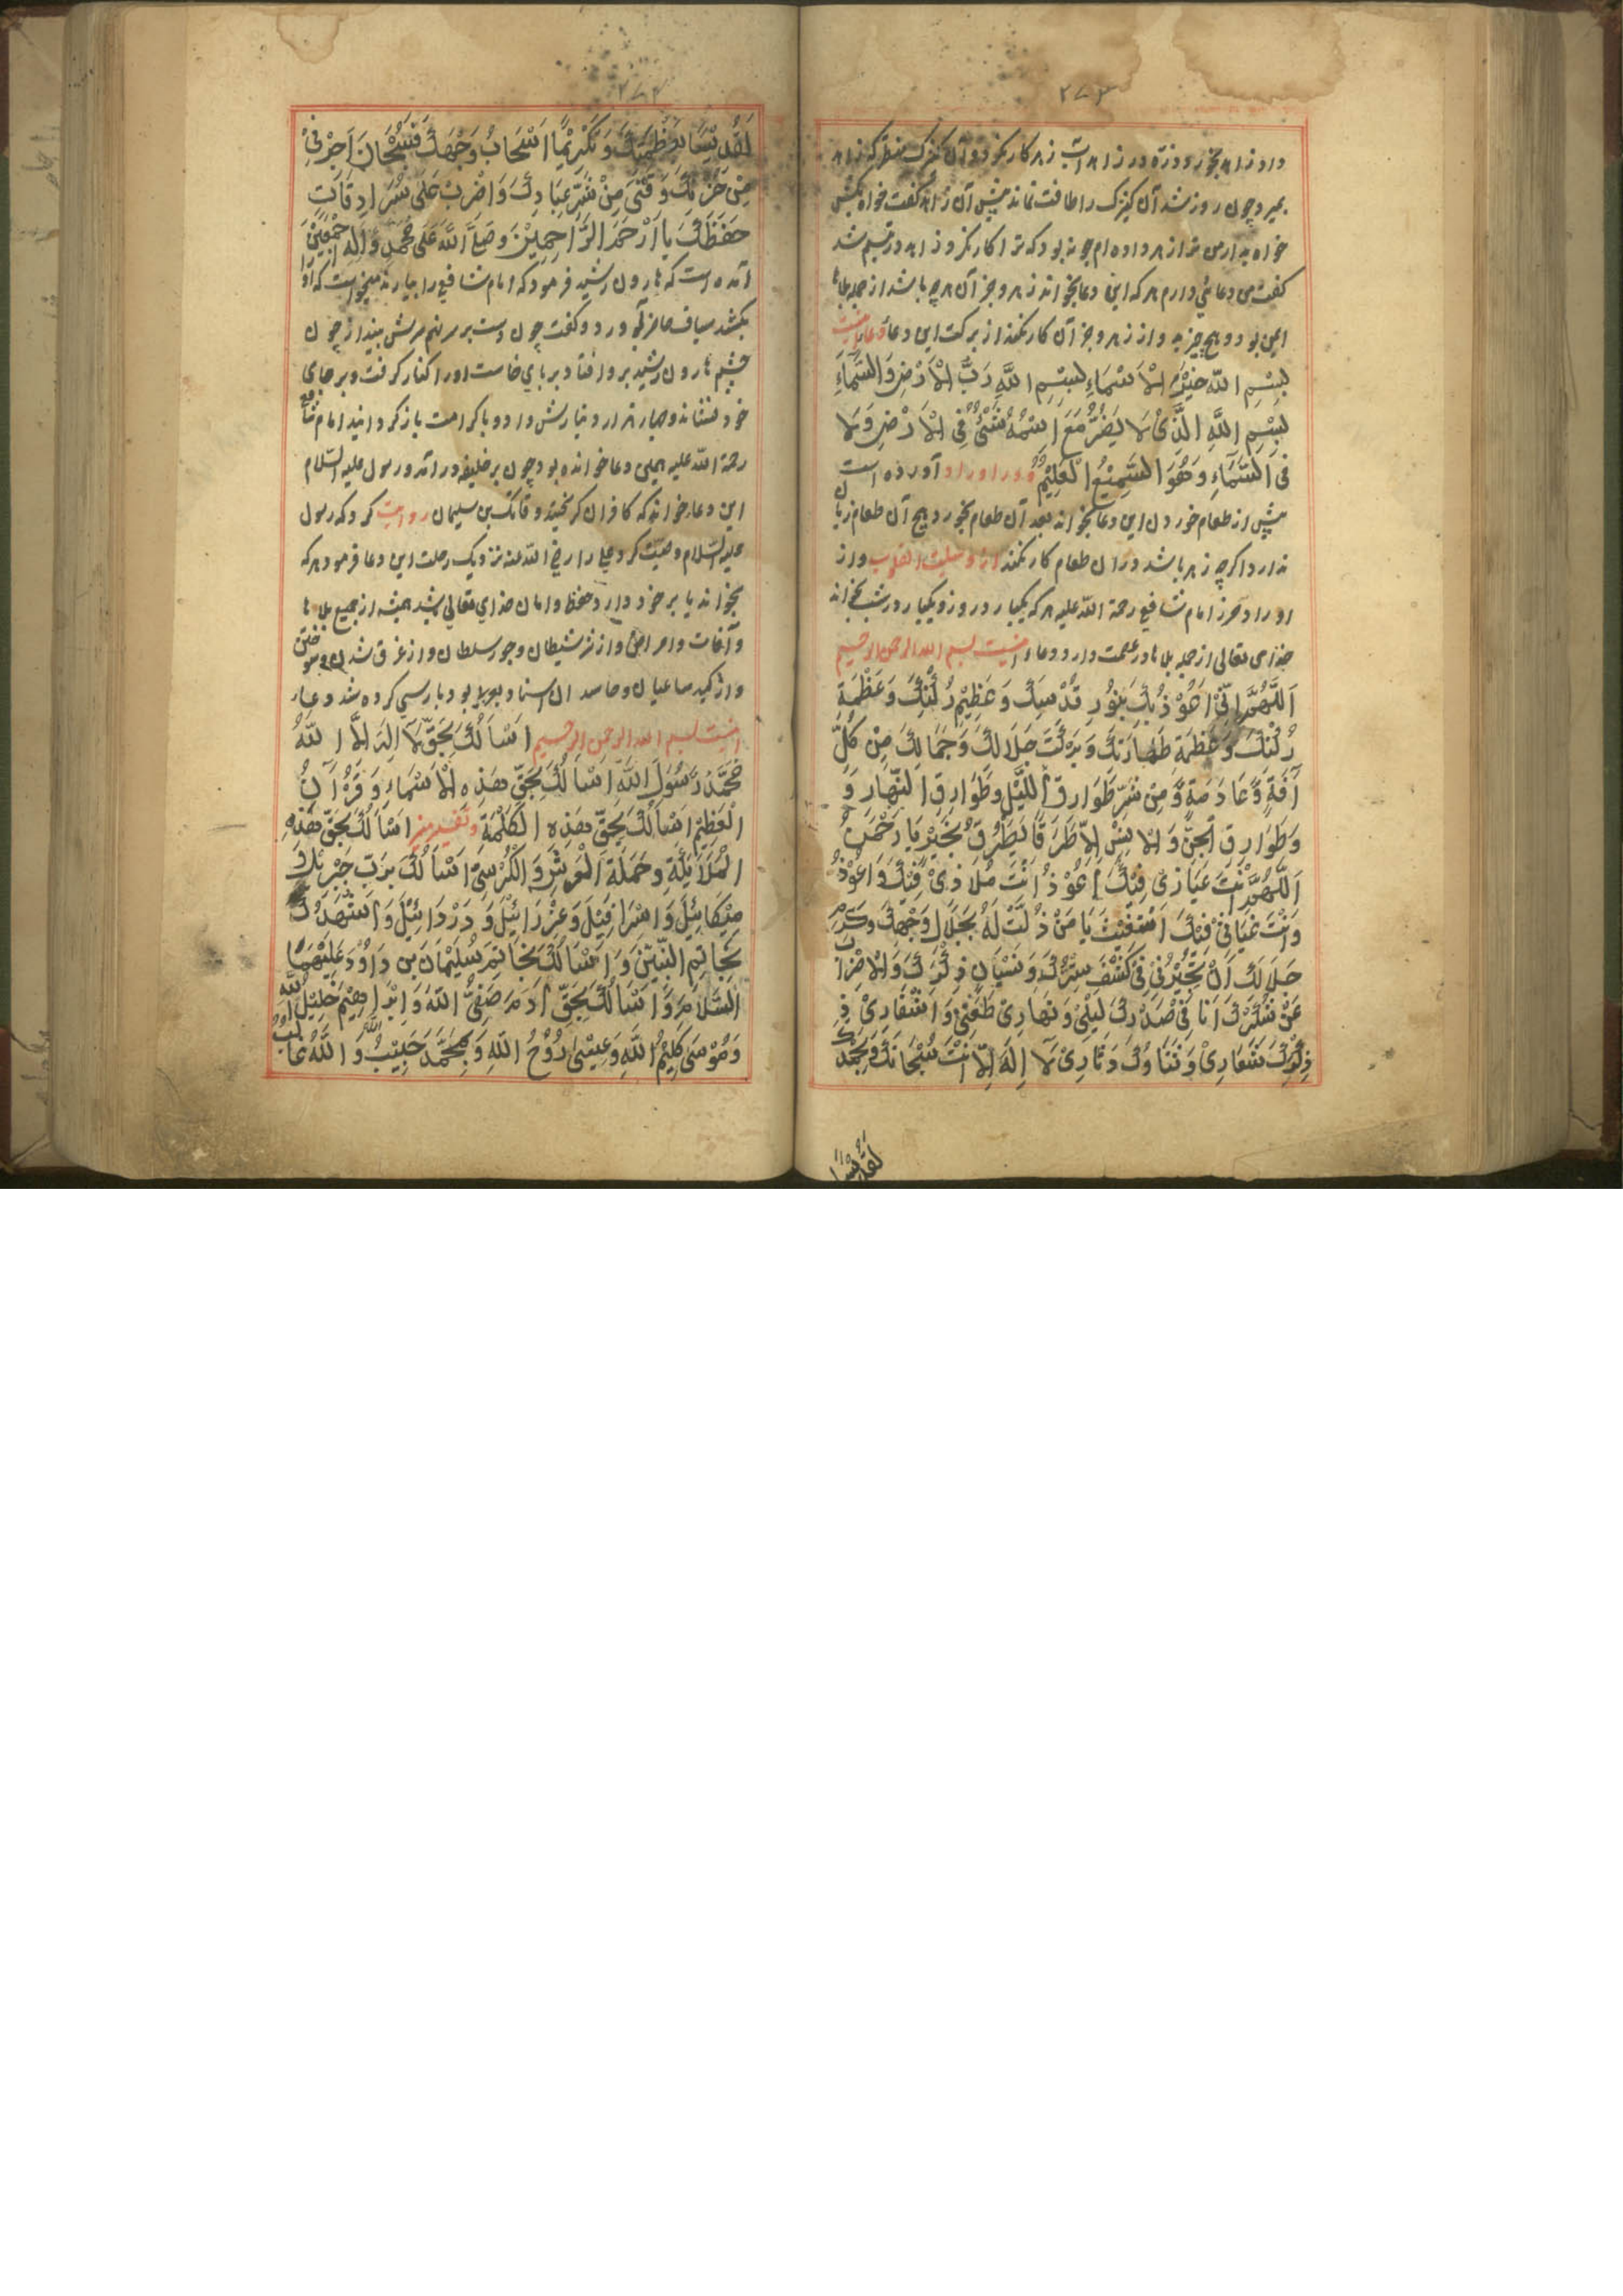 ۲۷۳
داد زاهد بخورد و زنده در زاهد آنشب زهر کار نکرد و آن کنیزک منتظر که زاهد
بمیرد چون روز شد آن کنیزک را طاقت نماند پیش آن زاهد گفت خواه بکش
خواه بدار من ترا زهر داده ام چونه بود که ترا کار نکرد زاهد در تبسم شد
گفت من دعائی دارم هر که این دعا بخواند زهر و جز آن هرچه باشد از جمله بلاها
ایمن بود و هیچ چیز بد و از زهر و جز آن کار نکند از برکت این دعا دعا اینست
بِسْمِ اللهِ خَيْرِ الْاَسْمَاءِ بِسْمِ اللهِ رَبِّ الْاَرْضِ وَالسَّمَآءِ
بِسْمِ اللهِ الَّذِیْ لَا يَضُرُّ مَعَ اسْمُهُ شَیْءٌ فِی الْاَرْضِ وَلَا
فِی السَّمَآءِ وَهُوَ السَّمِيْعُ الْعَلِيْمُ و در اوراد آورده است
پیش از طعام خوردن این دعا بخواند بعد آن طعام بخورد هیچ آن طعام زیان
ندارد اگرچه زهر باشد در آن طعام کار نکند از وسیلت القلوب و از
اوراد حرز امام شافع رحمة الله علیه هر که یکبار در روز و یکبار در شب بخواند
خدای تعالی از جمله بلاها در عصمت دارد دعاء اینست بسم الله الرحمن الرحیم
اَللّٰهُمَّ اِنِّیْ اَعُوْذُ بِكَ بِنُوْرِ قُدْسِكَ وَعَظِيْمِ رُكْنِكَ وَعَظْمَةِ
رُكْنِكَ وَعَظْمَةِ طَهَارَتِكَ وَبَرَكَتِ جَلَالِكَ وَجَمَالِكَ مِنْ كُلِّ
آفَةٍ وَّعَاهَةٍ وَّمِنْ شَرِّ طَوَارِقِ اللَّيْلِ وَطَوَارِقِ النَّهَارِ وَ
وَطَوَارِقِ الْجِنِّ وَالْاِنْسِ اِلَّا طَرَقًا يَطْرُقُ بِخَيْرٍ يَا رَحْمٰنُ
اَللّٰهُمَّ اَنْتَ عَيَاذِیْ فِبِكَ اَعُوْذُ اَنْتَ مُلَاذِیْ فِبِكَ وَاَعُوْذُ
وَاَنْتَ غِيَاثِیْ فِبِكَ اَسْتَغِيْثُ يَا مَنْ ذُلَّتْ لَهُ بِجَلَالِ وَجْهِكَ وَكَرَمِ
جَلَالِكَ اَنْ تُجِيْرُنِیْ فِیْ كَشْفِ سِتْرِكَ وَنِسْيَانِ ذِكْرِكَ وَالْاِضْرَابِ
عَنْ شُكْرِكَ اَنَا فِیْ صَدْرِكَ لَيْلِیْ وَنَهَارِیْ طَعْنِیْ وَاسْتِقَارِیْ فِی
ذِكْرِكَ شِعَارِیْ وَثَنَاؤُكَ دَثَارِیْ لَا اِلٰهَ اِلَّا اَنْتَ سُبْحَانَكَ وَبِحَمْدِكَ
تقدیسًا
۲۷۴
تَقْدِيْسًا بِعَظْمَتِكَ وَتَكْرِيْمًا سُبْحَاتِ وَجْهِكَ فَسُبْحَانَ اَجِرْنِیْ
مِنْ خِزْيِكَ وَقِنِیْ مِنْ شَرِّ عِبَادِكَ وَاضْرِبْ عَلَیَّ سُرَادِقَاتِ
حِفْظِكَ يَا اَرْحَمَ الرَّاحِمِيْنَ وَصَلَّی اللهُ عَلٰی مُحَمَّدٍ وَّاٰلِهِ اَجْمَعِيْنَ
آمده است که هارون رشید فرمود که امام شافع را بیارند میخواست که او را
بکشد سیاف حاضر آورد و گفت چون دست بر سر نهم سرش بینداز چون
چشم هارون رشید برو افتاد بر پای خاست او را کنار گرفت و بر جای
خود بنشاند و چهار هزار دینارش داد و با کرامت باز گردانید امام شافع
رحمة الله علیه همین دعا خوانده بود چون بر خلیفه در آمد و رسول علیه السلام
این دعا خواند که کافران گریختند و قاتک بن سلیمان روایت کرد که رسول
علیه السلام وصیت کرد علی را رضی الله عنه نزدیک رحلت این دعا فرمود هر که
بخواند یا بر خود دارد در حفظ و امان خدای تعالی باشد همیشه از جمیع بلاها
و آفات و امراض و از شر شیطان و جور سلطان و از غرق شدن و سوختن
و از کید ساعیان و حاسدان اسناد بعربی بود بپارسی کرده شد دعا
اینست بسم الله الرحمن الرحیم اَسْاَلُكَ بِحَقِّ لَا اِلٰهَ اِلَّا اللهُ
مُحَمَّدٌ رَّسُوْلُ اللهِ اَسْاَلُكَ بِحَقِّ هٰذِهِ الْاَسْمَاءِ وَقُرْاٰنُ
الْعَظِيْمِ اَسْاَلُكَ بِحَقِّ هٰذِهِ الْكَلِمَةِ اَسْاَلُكَ بِحَقِّ هٰذِهِ
الْمَلَائِكَةِ وَحَمَلَةِ الْعَرْشِ وَالْكُرْسِیِّ اَسْاَلُكَ بِرَبِّ جِبْرَئِيْلَ
مِيْكَائِيْلَ وَاِسْرَافِيْلَ وَعِزْرَائِيْلَ وَدَرْدَائِيْلَ وَاَسْتَشْهَدُكَ
بِخَاتِمِ النَّبِيِّيْنَ وَاَسْاَلُكَ بِخَاتِمِ سُلَيْمَانَ بِنِ دَاوُدَ عَلَيْهِمَا
السَّلَامِ وَاَسْاَلُكَ بِحَقِّ اٰدَمَ صَفِیُّ اللهِ وَاِبْرَاهِيْمَ خَلِيْلُ اللهِ
وَمُوْسٰی كَلِيْمُ اللهِ وَعِيْسٰی رُوْحُ اللهِ وَبِمُحَمَّدَ حَبِيْبُ اللهِ